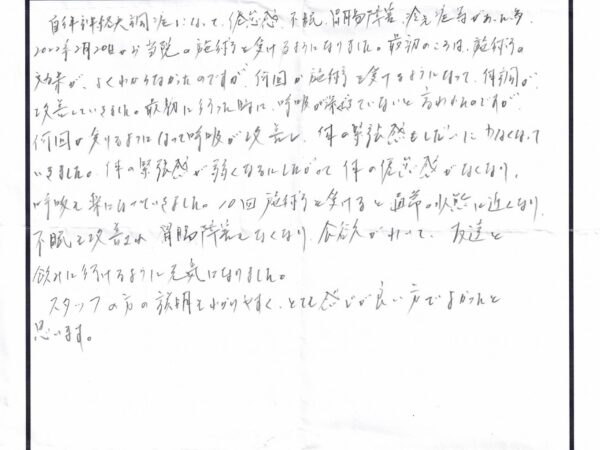 自律神経失調症になって、倦怠感、不眠、胃腸障害、冷え症等があった為
2022年2月20日から当院の施術を受けるようになりました。最初のころは、施術の
効果が、よくわからなかったのですが、何回か施術を受けるようになって、体調が
改善していきました。最初に行った時に、呼吸が深呼吸ていないと言われたのですが、
何回か受けるようになって呼吸が改善し、体の緊張感もしだいに少なくなって
いきました。体の緊張感が弱くなるにしたがって体の倦怠感がなくなり、
呼吸も楽になっていきました。10回施術を受けると通常の状態に近くなり、
不眠も改善され胃腸障害もなくなり、食欲がわいて、友達と
飲みに行けるように元気になりました。
スタッフの方の説明もわかりやすく、とても感じが良い方でよかったと
思います。